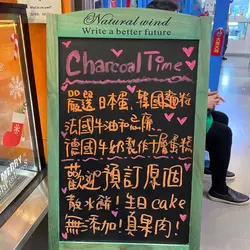 Natural wind
Write a better future
Charcoal Time
嚴選日本蛋、韓國麵粉
法國牛油和忌廉
德國牛奶製作千層蛋糕
歡迎預訂原個
散水餅！生日cake
無添加！真果肉！